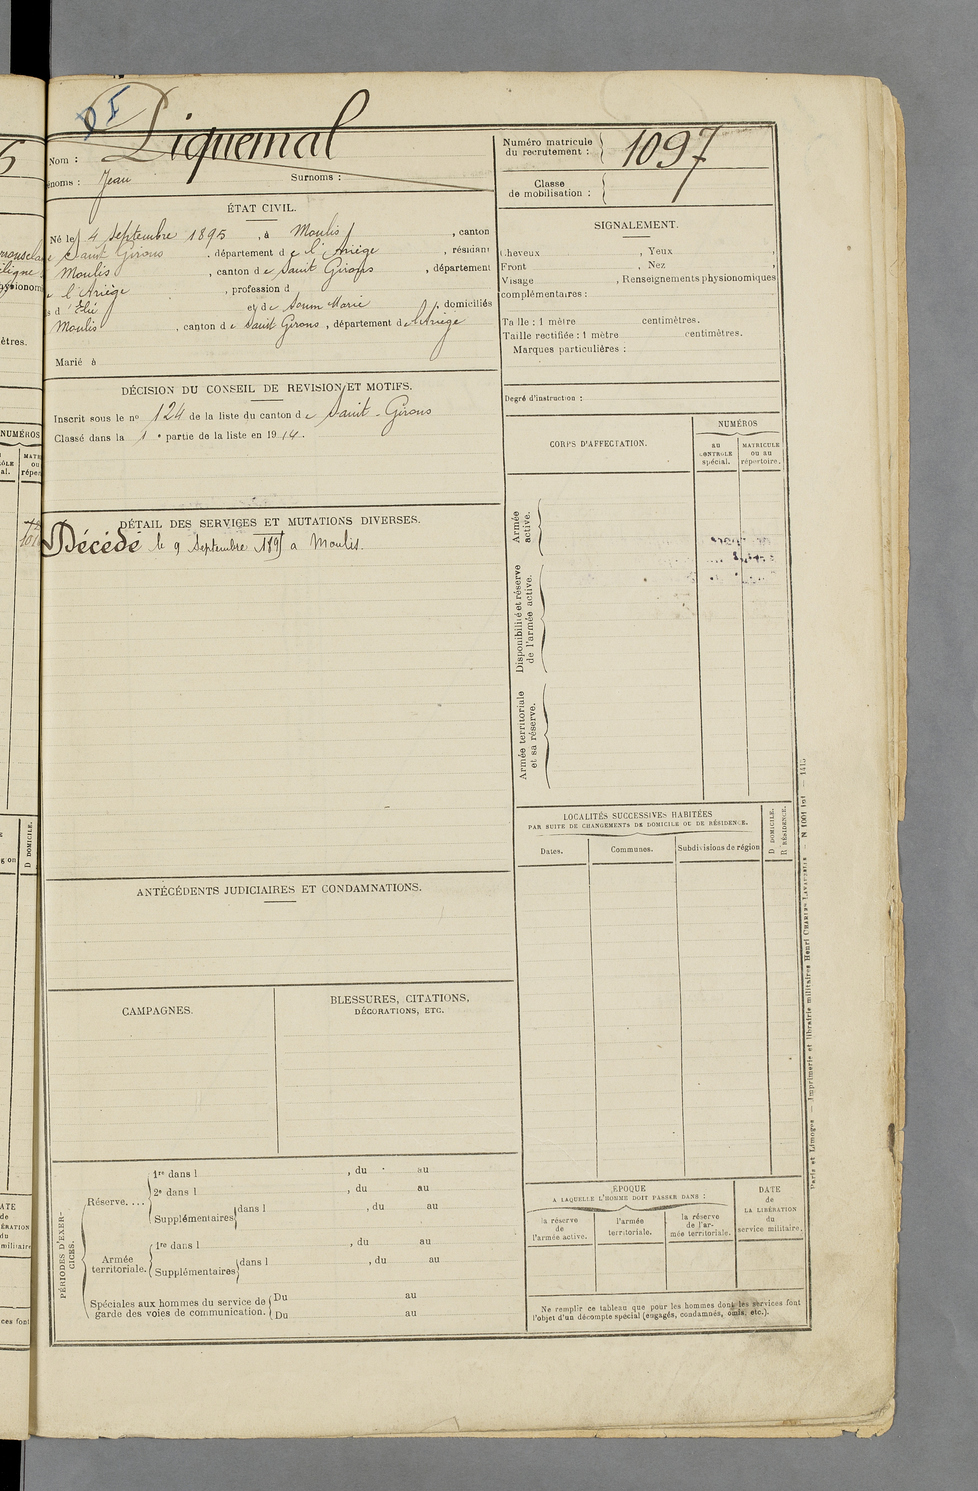 Nom : Piquemal
Prénoms : Jean Surnoms :
Numéro matricule du recrutement : 1097
Classe de mobilisation :
ÉTAT CIVIL.
Né le 4 Septembre 1895, à Moulis, canton
de Saint Girons, département de l'Ariège, résidant
Moulis, canton de Saint Girons, département
de l'Ariège, profession d
fils d' Elie et de Soum Marie, domiciliés
Moulis, canton de Saint Girons, département de l'Ariège
Marié à
DÉCISION DU CONSEIL DE REVISION ET MOTIFS.
Inscrit sous le nº 124 de la liste du canton de Saint-Girons
Classé dans la 1e partie de la liste en 1914.
DÉTAIL DES SERVICES ET MUTATIONS DIVERSES.
Décédé le 9 Septembre 189 à Moulis.
ANTÉCÉDENTS JUDICIAIRES ET CONDAMNATIONS.
CAMPAGNES.
BLESSURES, CITATIONS,
DÉCORATIONS, ETC.
PÉRIODES D'EXERCICES.
Réserve....
1re dans l , du au
2e dans l , du au
Supplémentaires dans l , du au
Armée territoriale.
1re dans l , du au
Supplémentaires dans l , du au
Spéciales aux hommes du service de garde des voies de communication.
Du au
Du au
SIGNALEMENT.
Cheveux , Yeux ,
Front , Nez ,
Visage , Renseignements physionomiques
complémentaires :
Taille : 1 mètre centimètres.
Taille rectifiée : 1 mètre centimètres.
Marques particulières :
Degré d'instruction :
CORPS D'AFFECTATION.
NUMÉROS
au CONTROLE spécial.
MATRICULE ou au répertoire.
Armée active.
Disponibilité et réserve de l'armée active.
Armée territoriale et sa réserve.
LOCALITÉS SUCCESSIVES HABITÉES
PAR SUITE DE CHANGEMENTS DE DOMICILE OU DE RÉSIDENCE.
Dates.
Communes.
Subdivisions de région
D DOMICILE.
R RÉSIDENCE.
ÉPOQUE
A LAQUELLE L'HOMME DOIT PASSER DANS :
la réserve de l'armée active.
l'armée territoriale.
la réserve de l'armée territoriale.
DATE de LA LIBÉRATION du service militaire.
Ne remplir ce tableau que pour les hommes dont les services font
l'objet d'un décompte spécial (engagés, condamnés, omis, etc.).